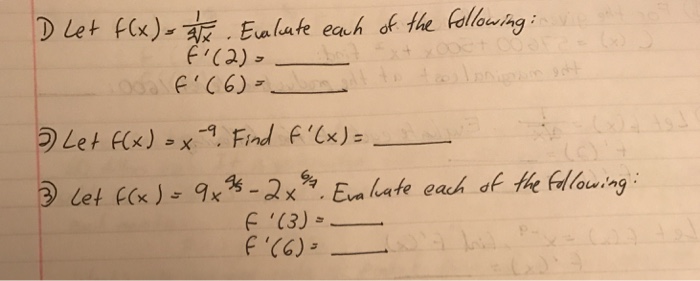 1) Let f(x) = 1/∜x . Evaluate each of the following:
f'(2) = ______
f'(6) = ______
2) Let f(x) = x^-9. Find f'(x) = ______
3) Let f(x) = 9x^9/5 - 2x^6/7. Evaluate each of the following:
f'(3) = ______
f'(6) = ______